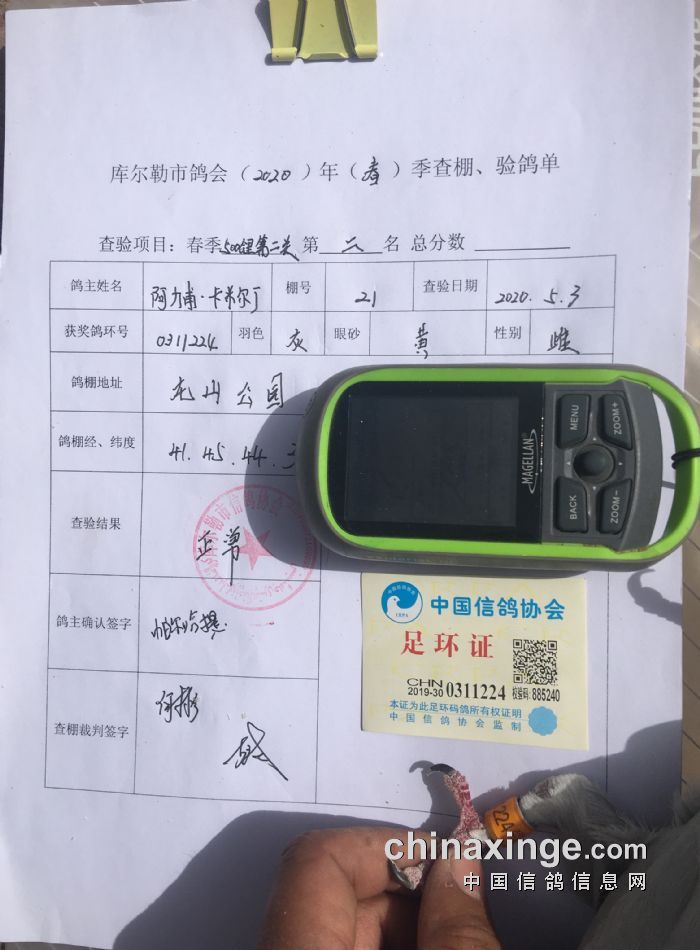 库尔勒市鸽会（2020）年（春）季查棚、验鸽单
查验项目：春季500公里第二关 第 二 名 总分数
鸽主姓名 阿力甫·卡米尔丁 棚号 21 查验日期 2020.5.3
获奖鸽环号 0311224 羽色 灰 眼砂 黄 性别 雌
鸽棚地址 龙山公园
鸽棚经、纬度 41.45.44.3
查验结果 正常
库尔勒市信鸽协会
鸽主确认签字
查棚裁判签字
MAGELLAN
MENU
ZOOM+
BACK
ZOOM-
中国信鸽协会
足环证
CHN
2019-30 0311224 校验码: 885240
本证为此足环码鸽所有权证明
中国信鸽协会监制
224
chinaxinge.com
中国信鸽信息网